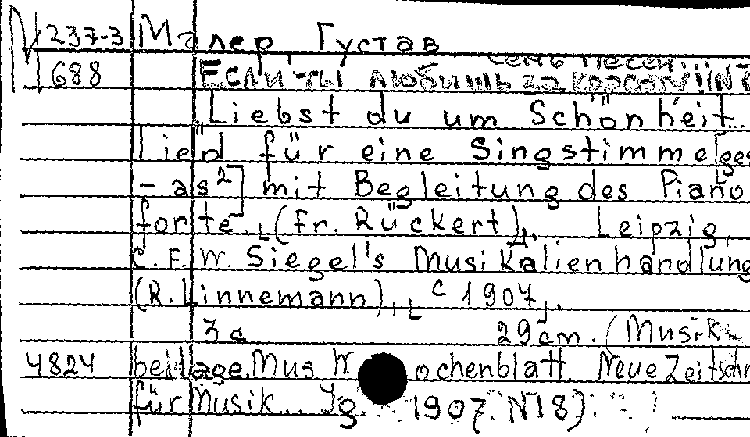 N 237-3 Малер, Густав
688 Если ты любишь за красоту
Liebst du um Schönheit.
Lied für eine Singstimme [ges
- as²] mit Begleitung des Piano
forte. (Fr. Rückert). Leipzig,
C. F. W. Siegel's Musikalienhandlung
(R. Linnemann), c 1907.
3 c 29 cm. (Musik
4824 beilage. Mus W ochenblatt. Neue Zeitschr
für Musik... Jg. 1907. N 18).